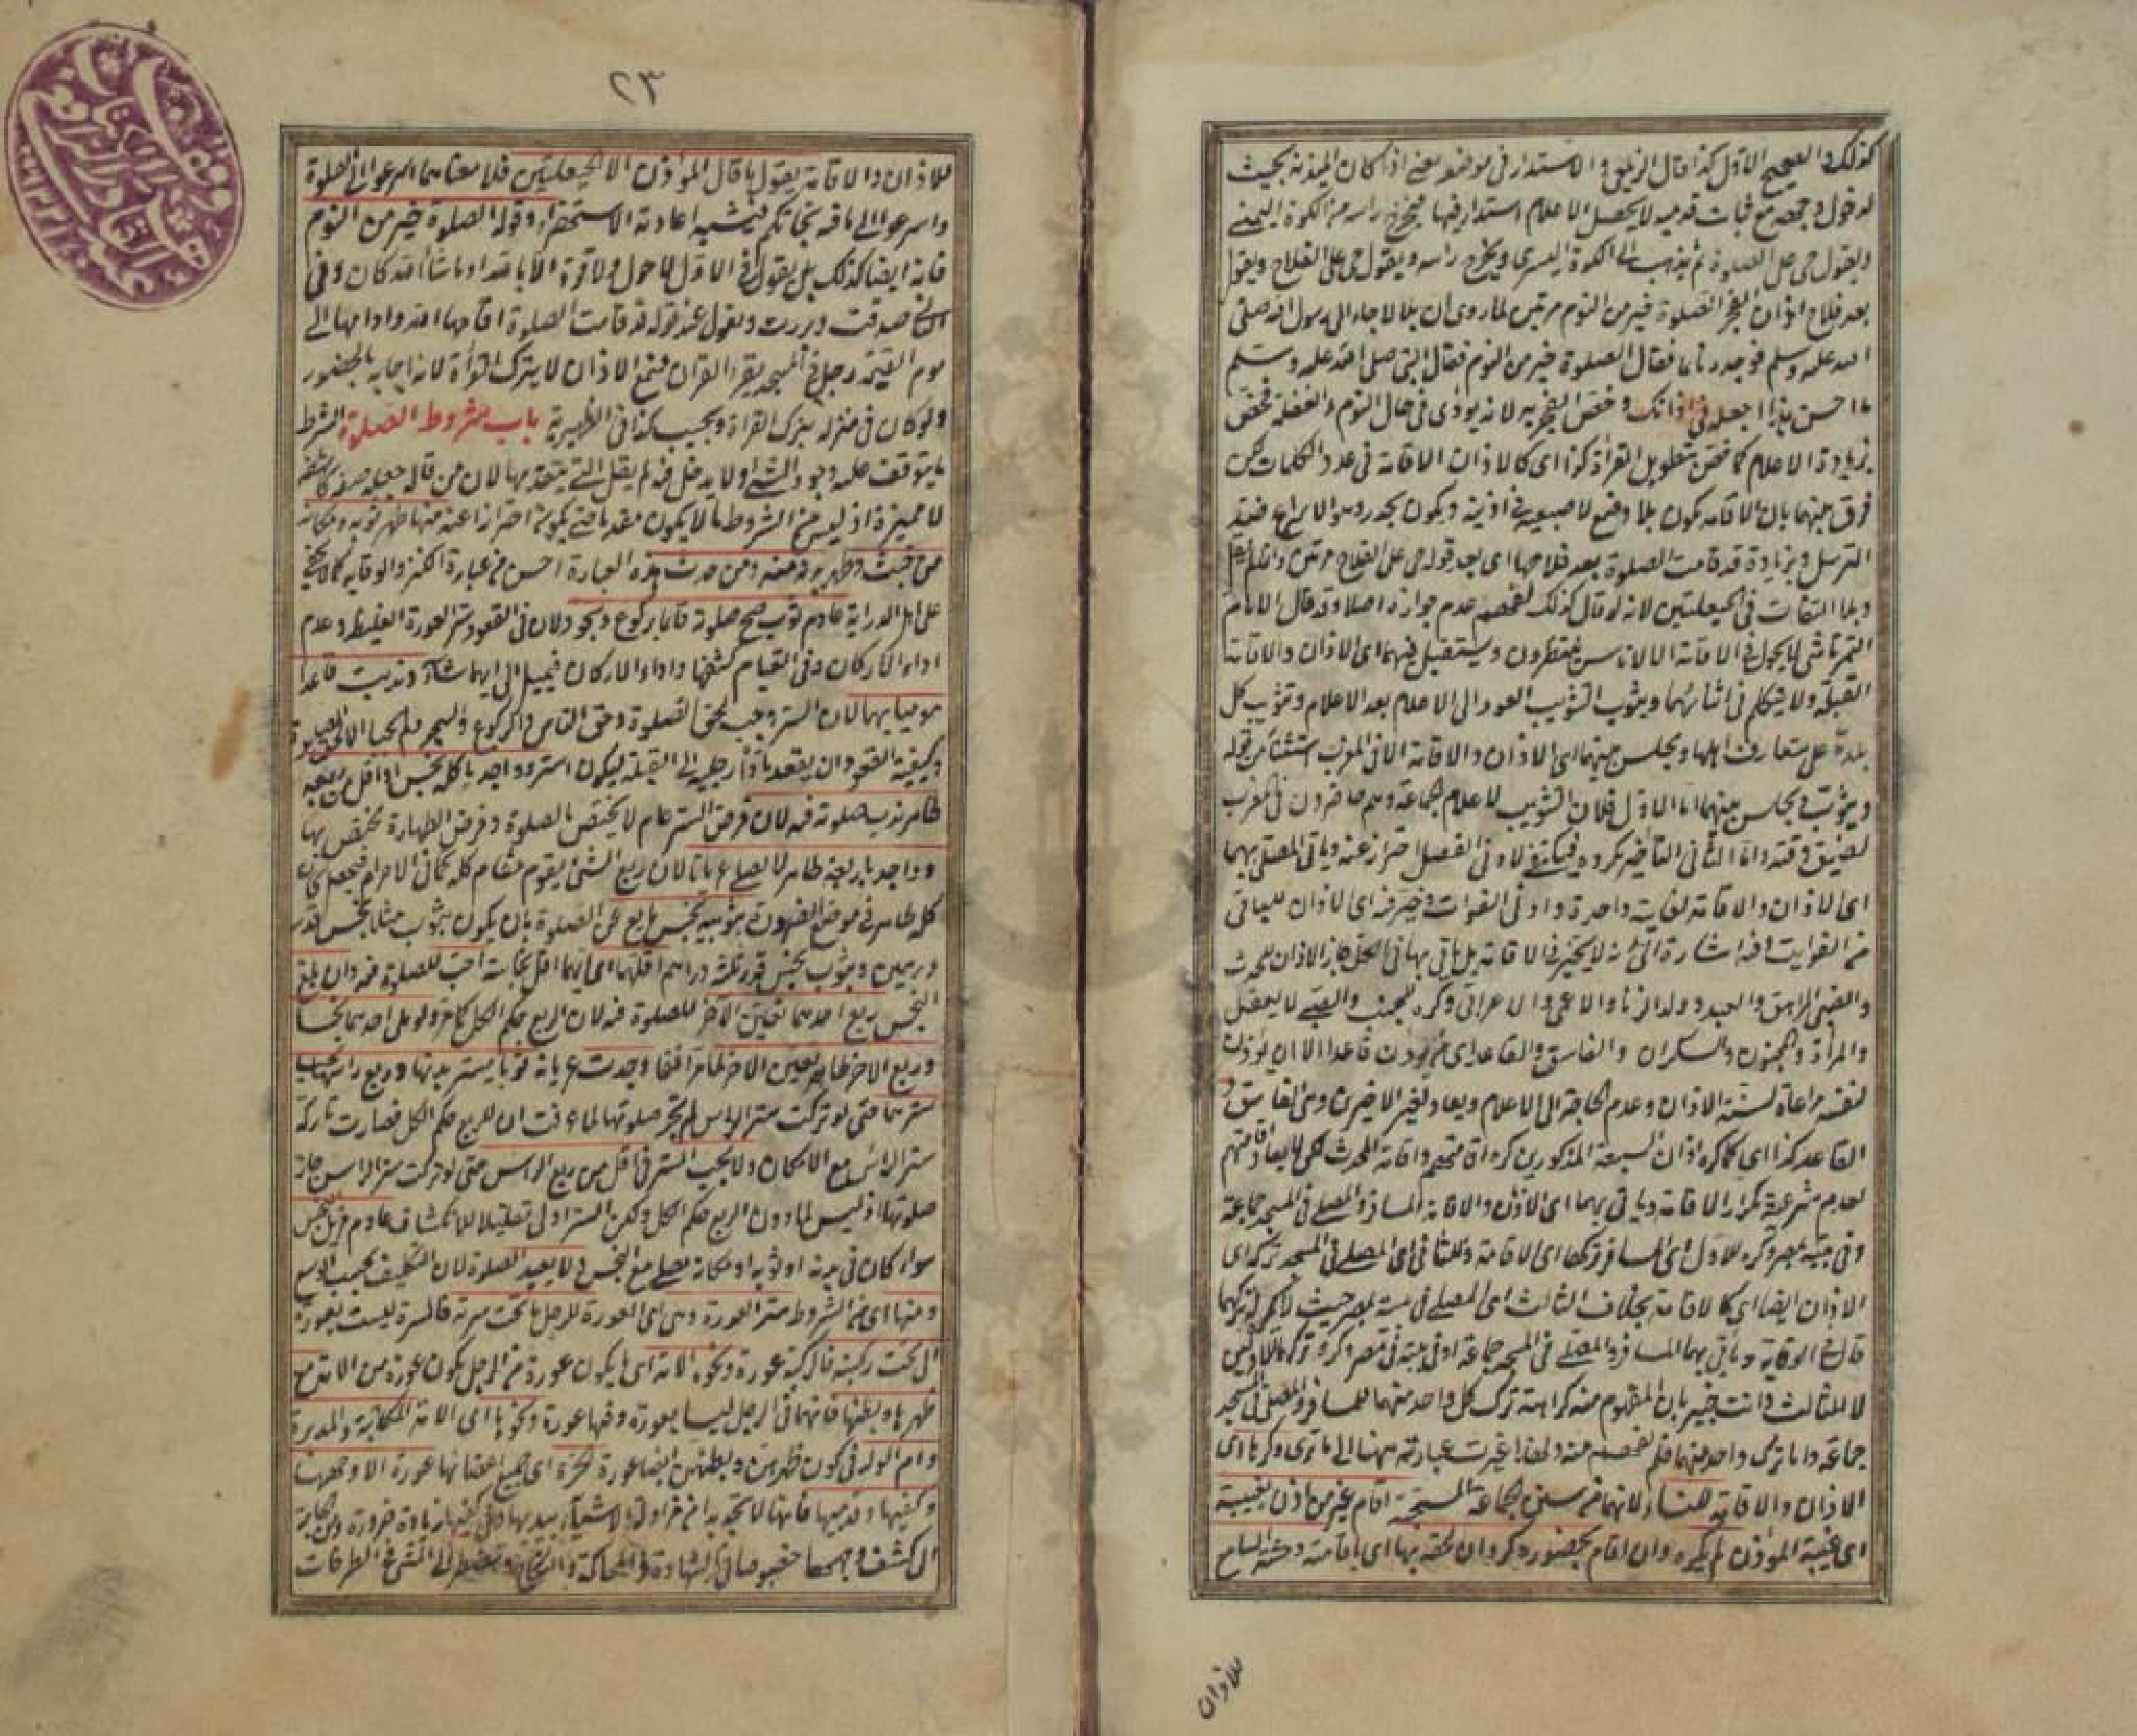 كذلك والصحيح الاول كذا قال الزيلعي والاستدار في موضعه يعني اذا كان الميذنة بحيث
لو حول وجهه مع ثبات قدميه لا يحصل الاعلام استدار فيها فيخرج راسه من الكوة اليمنى
ويقول حي على الصلوة ثم يذهب الى الكوة اليسرى ويخرج راسه ويقول حي على الفلاح ويقول
بعد فلاح اذان الفجر الصلوة خير من النوم مرتين لما روى ان بلالا جاء الى رسول الله صلى
الله عليه وسلم فوجده نائما فقال الصلوة خير من النوم فقال النبي صلى الله عليه وسلم
ما احسن هذا اجعله في اذانك وخص الفجر به لانه يؤدى في حال النوم والغفلة فخص
بزيادة الاعلام كما خص بتطويل القراة كذا اى كالاذان الاقامة في عدد الكلمات لكن
فرق بينهما بان الاقامة يكون بلا وضع لاصبعيه في اذنيه ويكون بحدر وهو الاسراع ضد
الترسل وبزيادة قد قامت الصلوة بعد فلاحها اى بعد قوله حي على الفلاح مرتين
وبلا التفات في الحيعلتين لانه لو قال كذلك لفهم عدم جوازه اصلا وقد قال الامام
التمرتاشي لا يحول في الاقامة الا لاناس ينتظرون ويستقبل فيهما اى الاذان والاقامة
القبلة ولا يتكلم في اثنائهما ويثوب التثويب العود الى الاعلام بعد الاعلام وتثويب كل
بلدة على متعارف اهلها ويجلس بينهما اى الاذان والاقامة الا في المغرب استثناء من قوله
ويثوب ويجلس بينهما اما الاول فلان التثويب لاعلام الجماعة وهم حاضرون في المغرب
لضيق وقته واما الثاني فالتاخير مكروه فيكتفي لادنى الفصل احترازا عنه وياتي المصلي بهما
اى الاذان والاقامة لفايتة واحدة واولى الفوائت وخير فيه اى الاذان للباقي
من الفوايت وفيه اشارة الى انه لا يخير في الاقامة بل ياتي بها في الكل جاز الاذان للمحدث
والصبي المراهق والعبد وولد الزنا والاعمى والاعرابي وكره للجنب والصبي لا يعقل
والمراة والمجنون والسكران والفاسق والقاعد اى من يؤذن قاعدا الا ان يؤذن
لنفسه مراعاة لسنة الاذان وعدم الحاجة الى الاعلام ويعاد لغير الاخيرين وهي الفاسق و
القاعد كذا اى كما كره اذان السبعة المذكورين كره اقامتهم واقامة المحدث لكن لا يعاد اقامتهم
لعدم شرعية تكرار الاقامة وياتي بهما اى الاذان والاقامة المسافر والمصلي في المسجد جماعة
وفي بيته بمصر وكره للاول اى المسافر تركها اى الاقامة وللثاني اى المصلي في المسجد تركه اى
الاذان ايضا اى كالاقامة بخلاف الثالث اى المصلي في بيته بمصر حيث لا يكره تركهما
قال في الوقاية وياتي بهما المسافر والمصلي في المسجد جماعة او في بيته في مصر وكره تركهما للاولين
لا للثالث وانت خبير بان المفهوم منه كراهة ترك كل واحد منهما للمسافر والمصلي في المسجد
جماعة واما ترك واحد منهما فلم يفهم منه ولهذا غيرت عبارته ههنا الى ما ترى وكرها اى
الاذان والاقامة للنساء لانهما من سنن الجماعة المستحبة اقام غير من اذن بغيبته
اى غيبة المؤذن لم يكره وان اقام بحضوره كره ان لحقه بها اى باقامته وحشة السامع
للاذان
٢٣
للاذان والاقامة يقول ما قال المؤذن الا الحيعلتين فان معناهما اسرعوا الى الصلوة
واسرعوا الى ما فيه نجاتكم فيشبه اعادته الاستهزاء وقوله الصلوة خير من النوم
فانه ايضا كذلك بل يقول في الاول لا حول ولا قوة الا بالله او ما شاء الله كان وفي
الثاني صدقت وبررت ويقول عند قوله قد قامت الصلوة اقامها الله وادامها الى
يوم القيمة رجل في المسجد يقرء القران فسمع الاذان لا يترك القراة لانه اجابه بالحضور
ولو كان في منزله يترك القراة ويجيب كذا في الظهيرية باب شروط الصلوة الشرط
ما يتوقف عليه وجود الشئ ولا يدخل فيه لم يقل التي يتقدمها لان من قاله جعله صفة كاشفة
لا مميزة اذ ليس من الشروط ما لا يكون مقدما حتى يكون احترازا عنه منها طهر ثوبه ومكانه
من خبث وطهر بدنه منه ومن حدث هذه العبارة احسن من عبارة الكنز والوقاية كما لا يخفى
على اهل الدراية عادم ثوب صح صلوته قائما بركوع وسجود لان في القعود ستر العورة الغليظة وعدم
اداء الاركان وفي القيام كشفها واداء الاركان فيميل الى ايهما شاء وندبت قاعدا
موميا بهما لان الستر وجب لحق الصلوة وحق الناس والركوع والسجود لم يجبا الا لحق الصلوة
وكيفية القعود ان يقعد مادا رجليه الى القبلة ليكون استر وواجد ما كله نجس او اقل من ربعه
طاهر ندب صلوته فيه لان فرض الستر عام لا يختص بالصلوة وفرض الطهارة مختص بها
وواجد ما ربعه طاهر لا يصلي عاريا لان ربع الشئ يقوم مقام كله كما في الاحرام فيجعل كان
كله طاهر في موضع الضرورة وثوبيه نجس مانع عن الصلوة بان يكون ثوب مثلا نجس قدر
درهمين وثوب نجس قدر ثلثة دراهم اقلهما اى ايهما اقل نجاسة احب للصلوة فيه وان بلغ
النجس ربع احدهما تعين الاخر للصلوة فيه لان الربع حكم الكل كما مر ولو على احدهما نجسا
وربع الاخر طاهر تعين الاخر لما مر انفا وجدت عريانة ثوبا يستر بدنها وربع راسها يجب
سترهما حتى لو تركت ستر الراس لم تجز صلوتها لما عرفت ان للربع حكم الكل فصارت تاركة
ستر الراس مع الامكان ولا يجب الستر في اقل من ربع الراس حتى لو تركت ستر الراس جاز
صلوتها اذ ليس لما دون الربع حكم الكل ولكن الستر اولى تقليلا للانكشاف عادم مزيل النجس
سواء كان في بدنه او ثوبه او مكانه يصلي مع النجس ولا يعيد الصلوة لان التكليف بحسب الوسع
ومنها اى من الشروط ستر العورة وهي اى العورة للرجل ما تحت سرته فالسرة ليست بعورة
الى تحت ركبته فالركبة عورة ونحوه الامة اى ما يكون عورة من الرجل يكون عورة من الامة مع
ظهرها وبطنها فانهما في الرجل ليسا بعورة وفيها عورة ونحوها اى الامة المكاتبة والمدبرة
وام الولد في كون ظهرهن وبطنهن ايضا عورة الحرة اى جميع اعضائها عورة الا وجهها
وكفيها وقدميها فانها لا تجد بدا من مزاولة الاشياء بيديها وفي كفيها زيادة ضرورة ومن الحاجة
الى كشف وجهها خصوصا في الشهادة والمحاكمة والنكاح وتضطر الى المشي في الطرقات